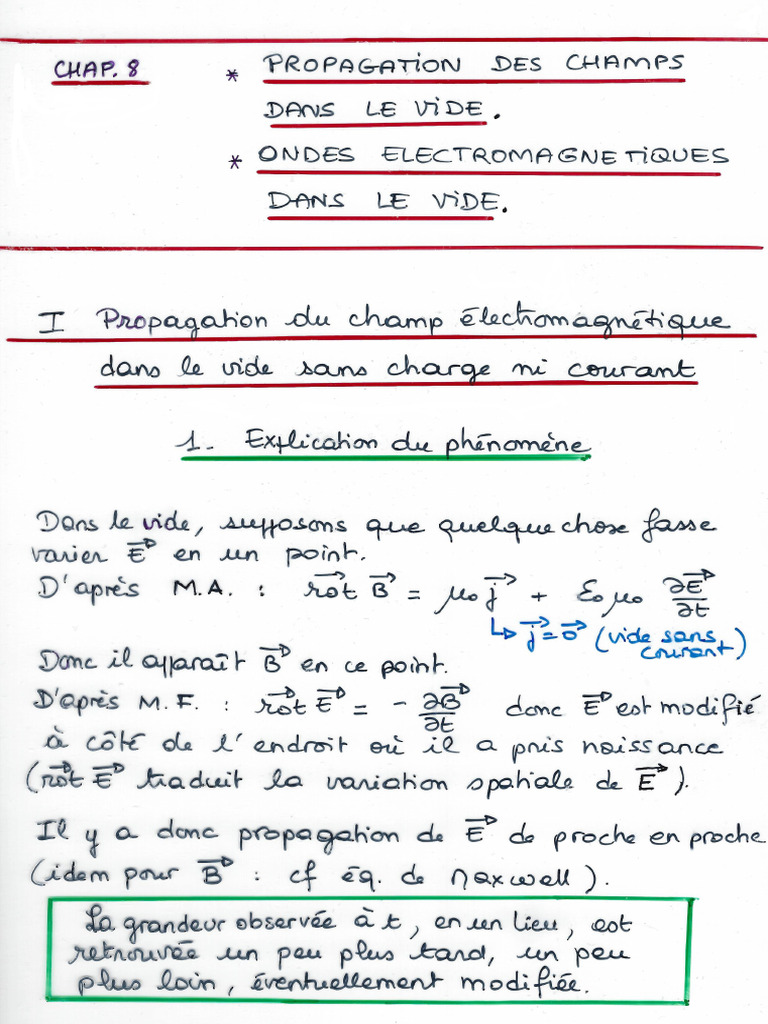 CHAP. 8 * PROPAGATION DES CHAMPS
DANS LE VIDE.
* ONDES ELECTROMAGNETIQUES
DANS LE VIDE.
I Propagation du champ électromagnétique
dans le vide sans charge ni courant
1. Explication du phénomène
Dans le vide, supposons que quelque chose fasse
varier E⃗ en un point.
D'après M.A. : rot⃗ B⃗ = μ₀ j⃗ + ε₀ μ₀ ∂E⃗/∂t
↳ j⃗ = 0⃗ (vide sans
courant)
Donc il apparaît B⃗ en ce point.
D'après M.F. : rot⃗ E⃗ = - ∂B⃗/∂t donc E⃗ est modifié
à côté de l'endroit où il a pris naissance
(rot⃗ E⃗ traduit la variation spatiale de E⃗).
Il y a donc propagation de E⃗ de proche en proche
(idem pour B⃗ : cf éq. de Maxwell).
La grandeur observée à t, en un lieu, est
retrouvée un peu plus tard, un peu
plus loin, éventuellement modifiée.